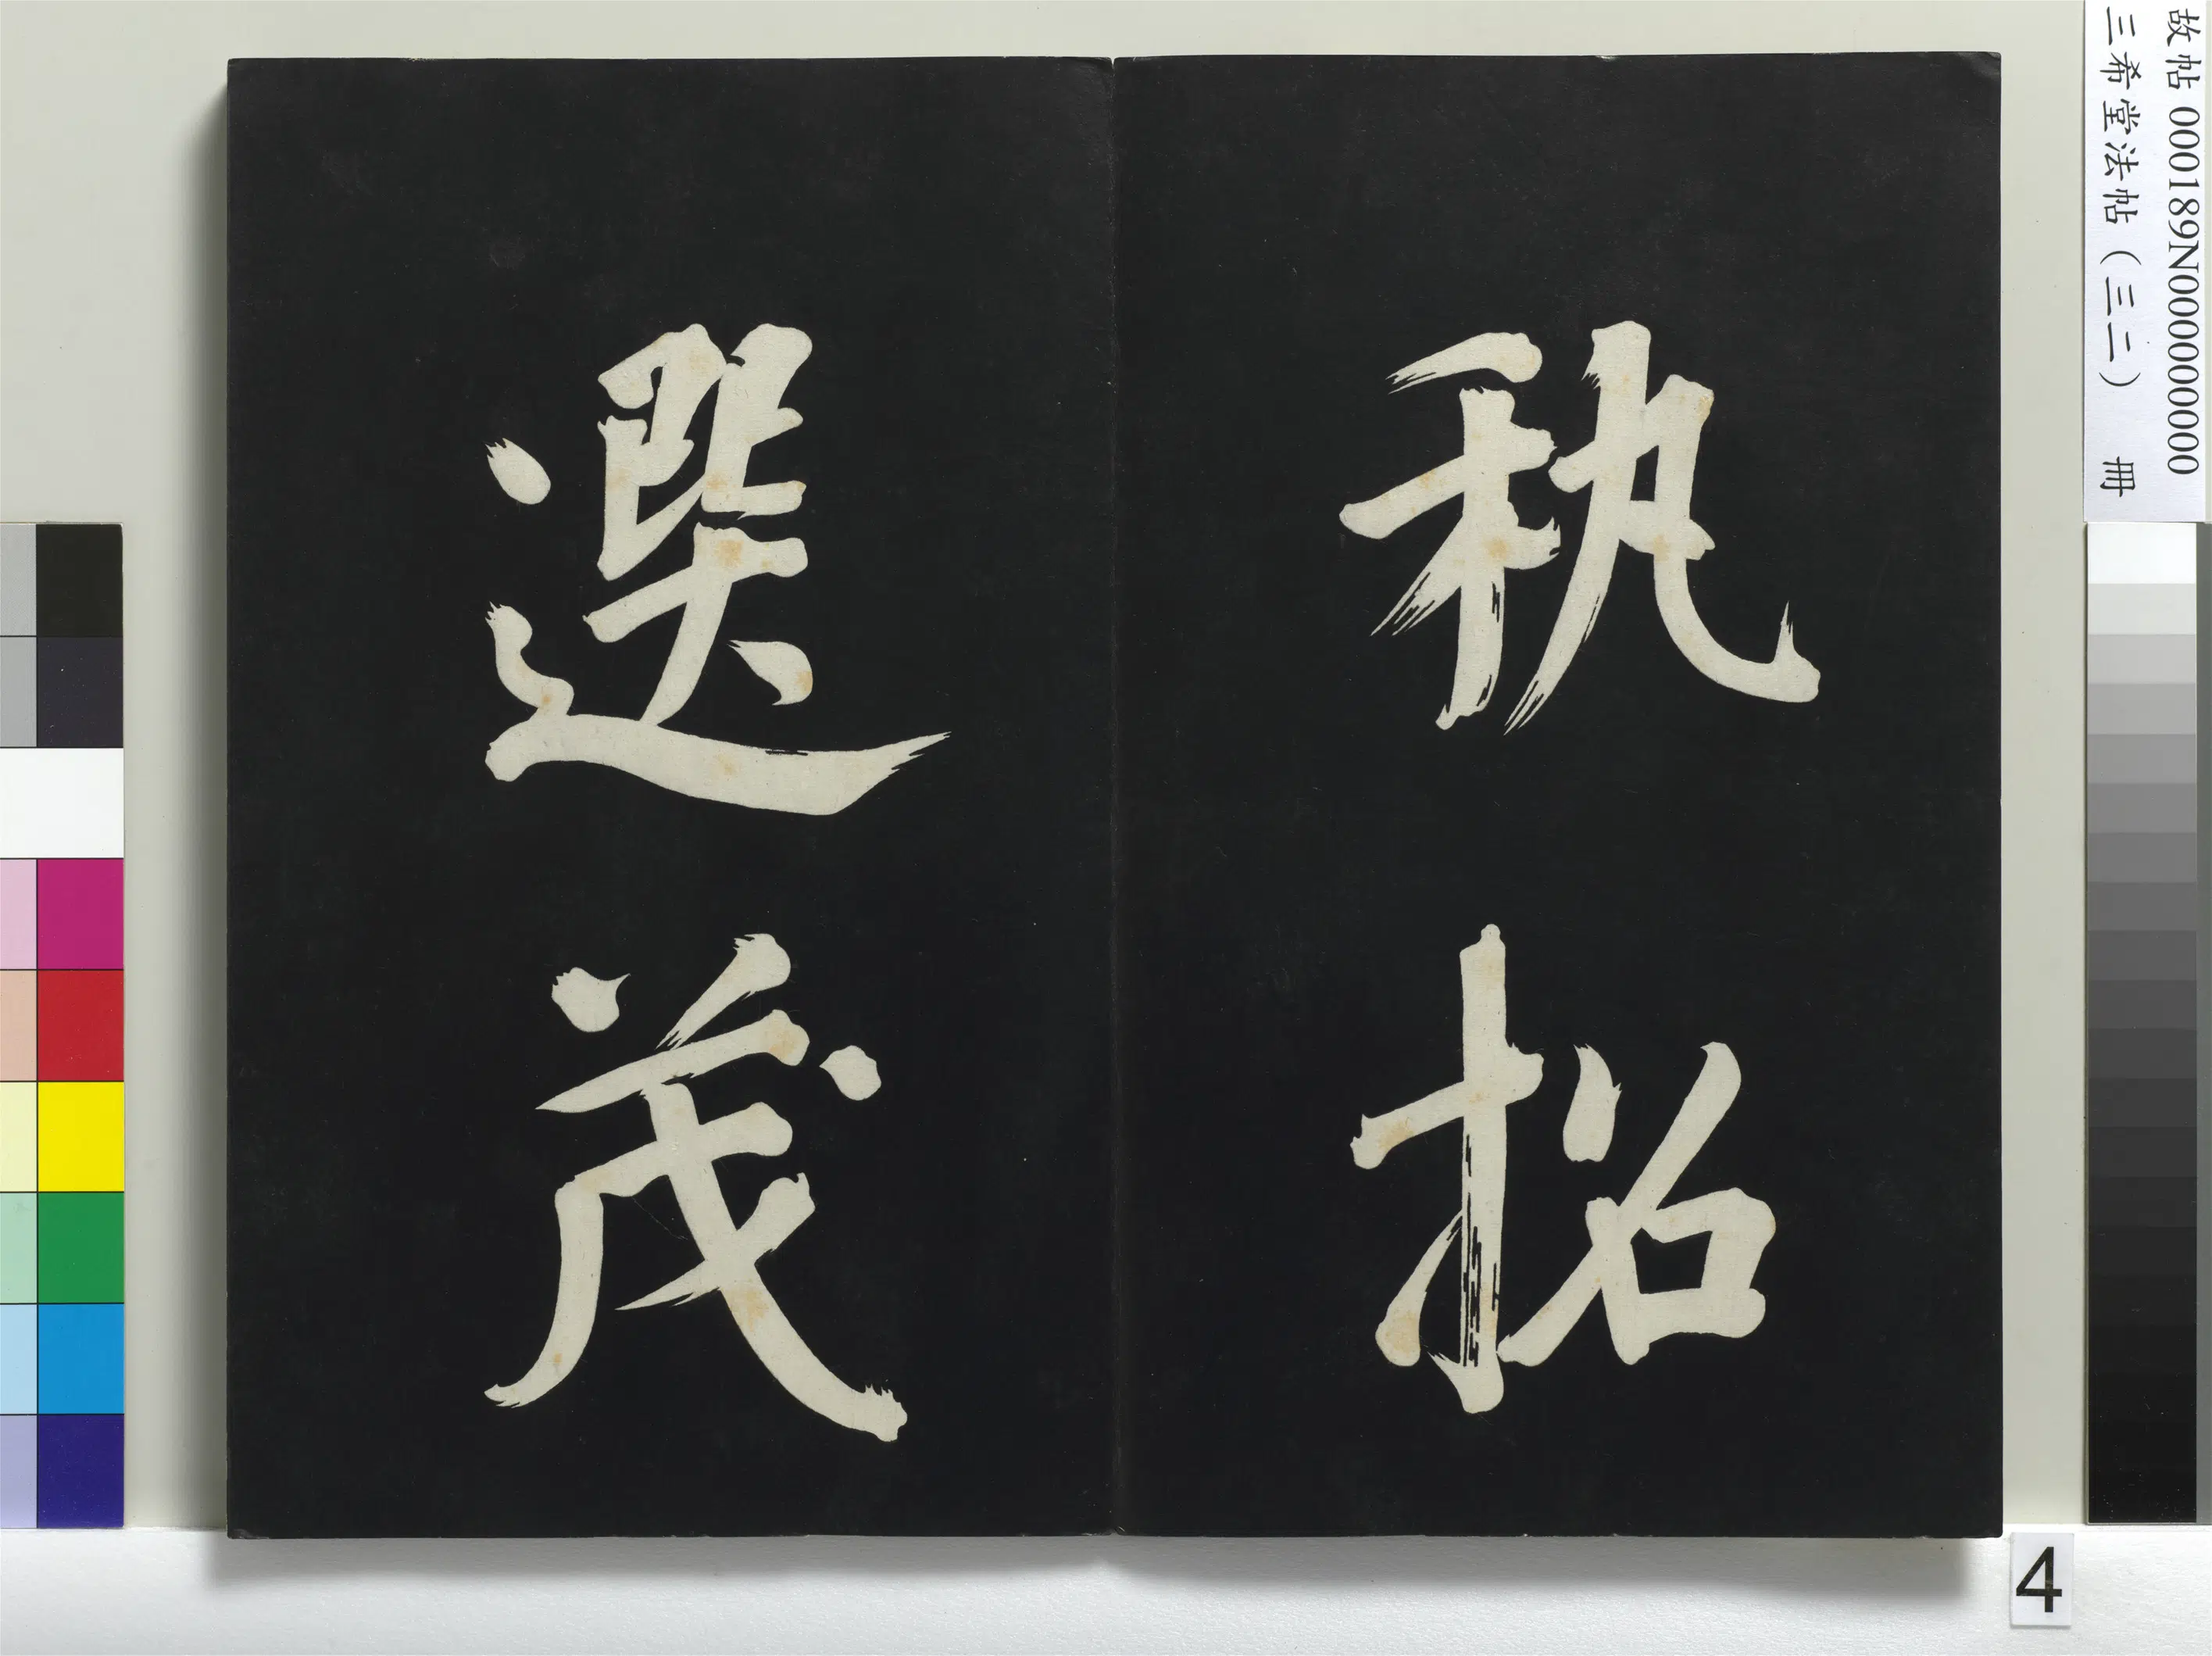 秇招
選茂
故帖 000189N000000000
三希堂法帖（三二） 冊
4